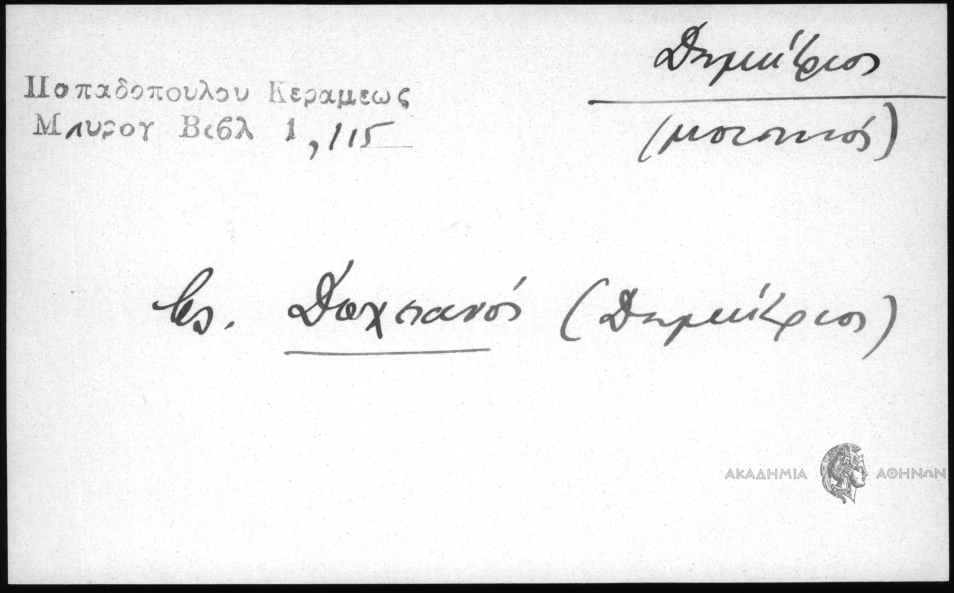 Δημήτριος
(μουσικός)
Παπαδοπουλου Κεραμεως
Μαυρογ Βιβλ 1, 115
βλ. Δοχειανός (Δημήτριος)
ΑΚΑΔΗΜΙΑ ΑΘΗΝΩΝ